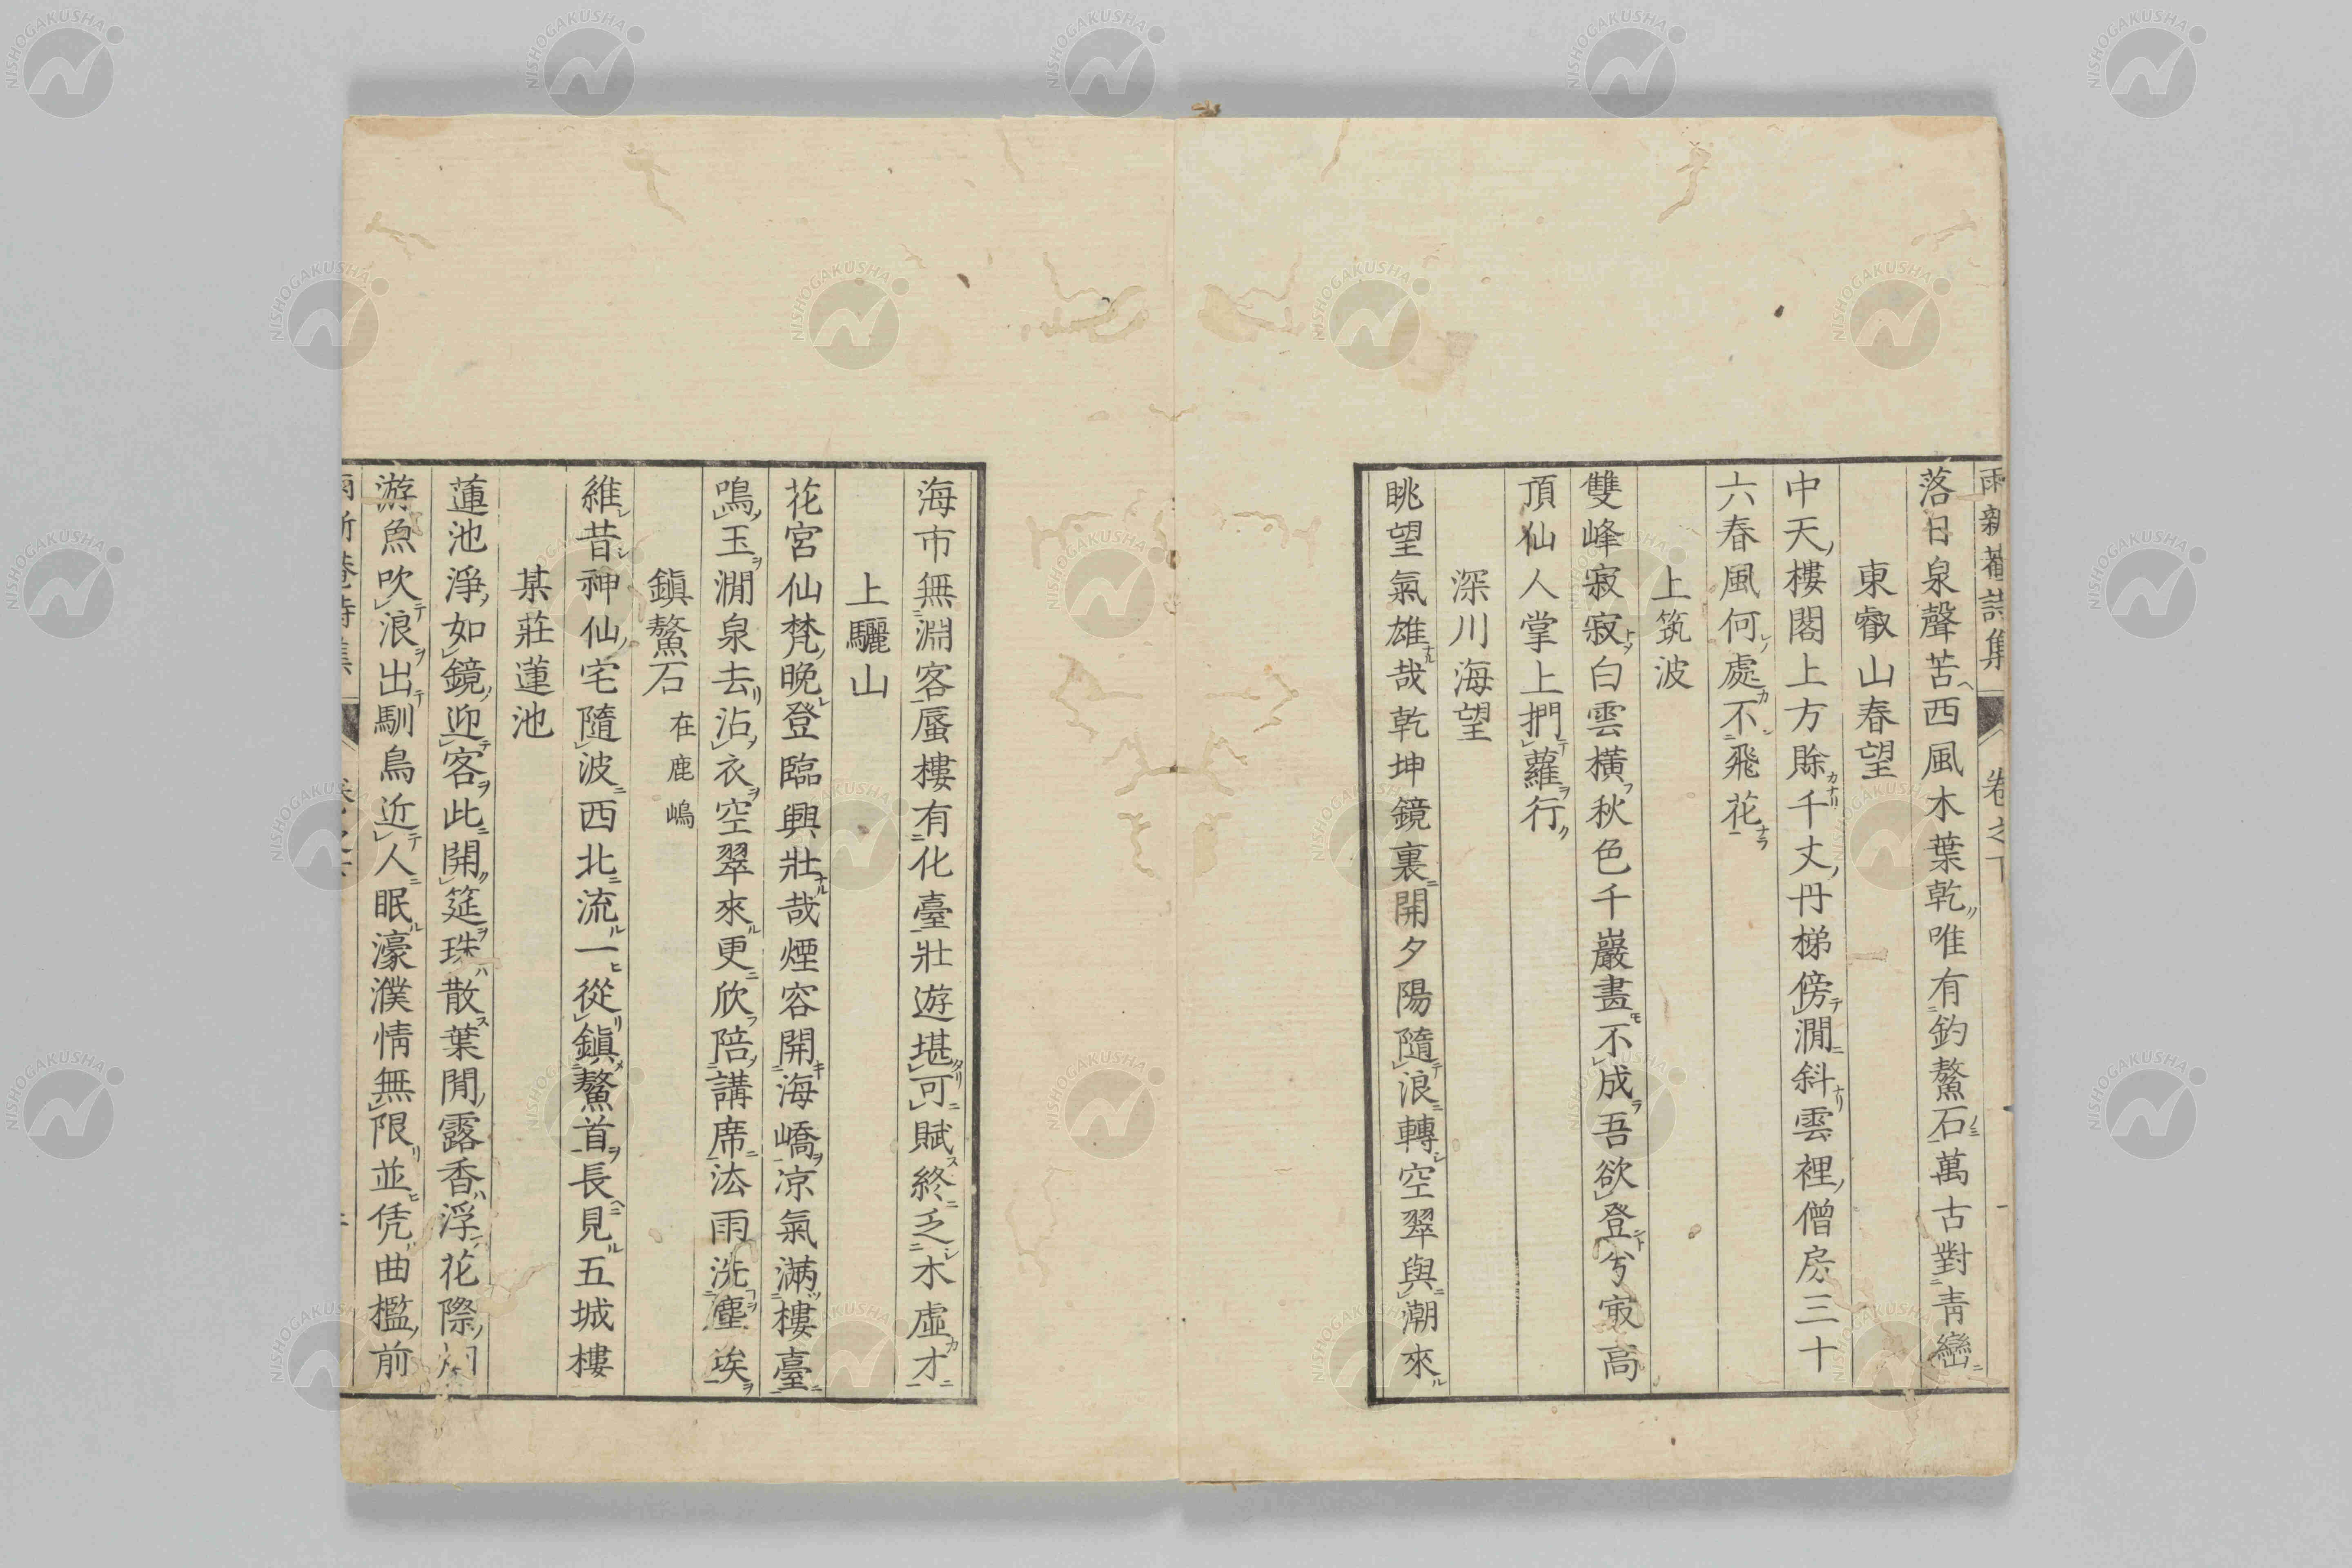 落日泉聲苦西風木葉乾唯有釣鰲石萬古對青巒
東叡山春望
中天樓閣上方賖千丈丹梯傍澗斜雲裡僧房三十
六春風何處不飛花
上筑波
雙峰寂寂白雲橫秋色千巖畫不成吾欲登兮㝡高
頂仙人掌上捫蘿行
深川海望
眺望氣雄哉乾坤鏡裏開夕陽隨浪轉空翠與潮來
海市無淵客蜃樓有化臺壯遊堪可賦終乏木虛才
上驪山
花宮仙梵晚登臨興壯哉煙容開海嶠凉氣滿樓臺
鳴玉澗泉去沾衣空翠來更欣陪講席法雨洗塵埃
鎮鰲石 在鹿嶋
維昔神仙宅隨波西北流一從鎮鰲首長見五城樓
某莊蓮池
蓮池淨如鏡迎客此開筵珠散葉間露香浮花際
游魚吹浪出馴鳥近人眠濠濮情無限並凭曲檻前
NISHOGAKUSHA